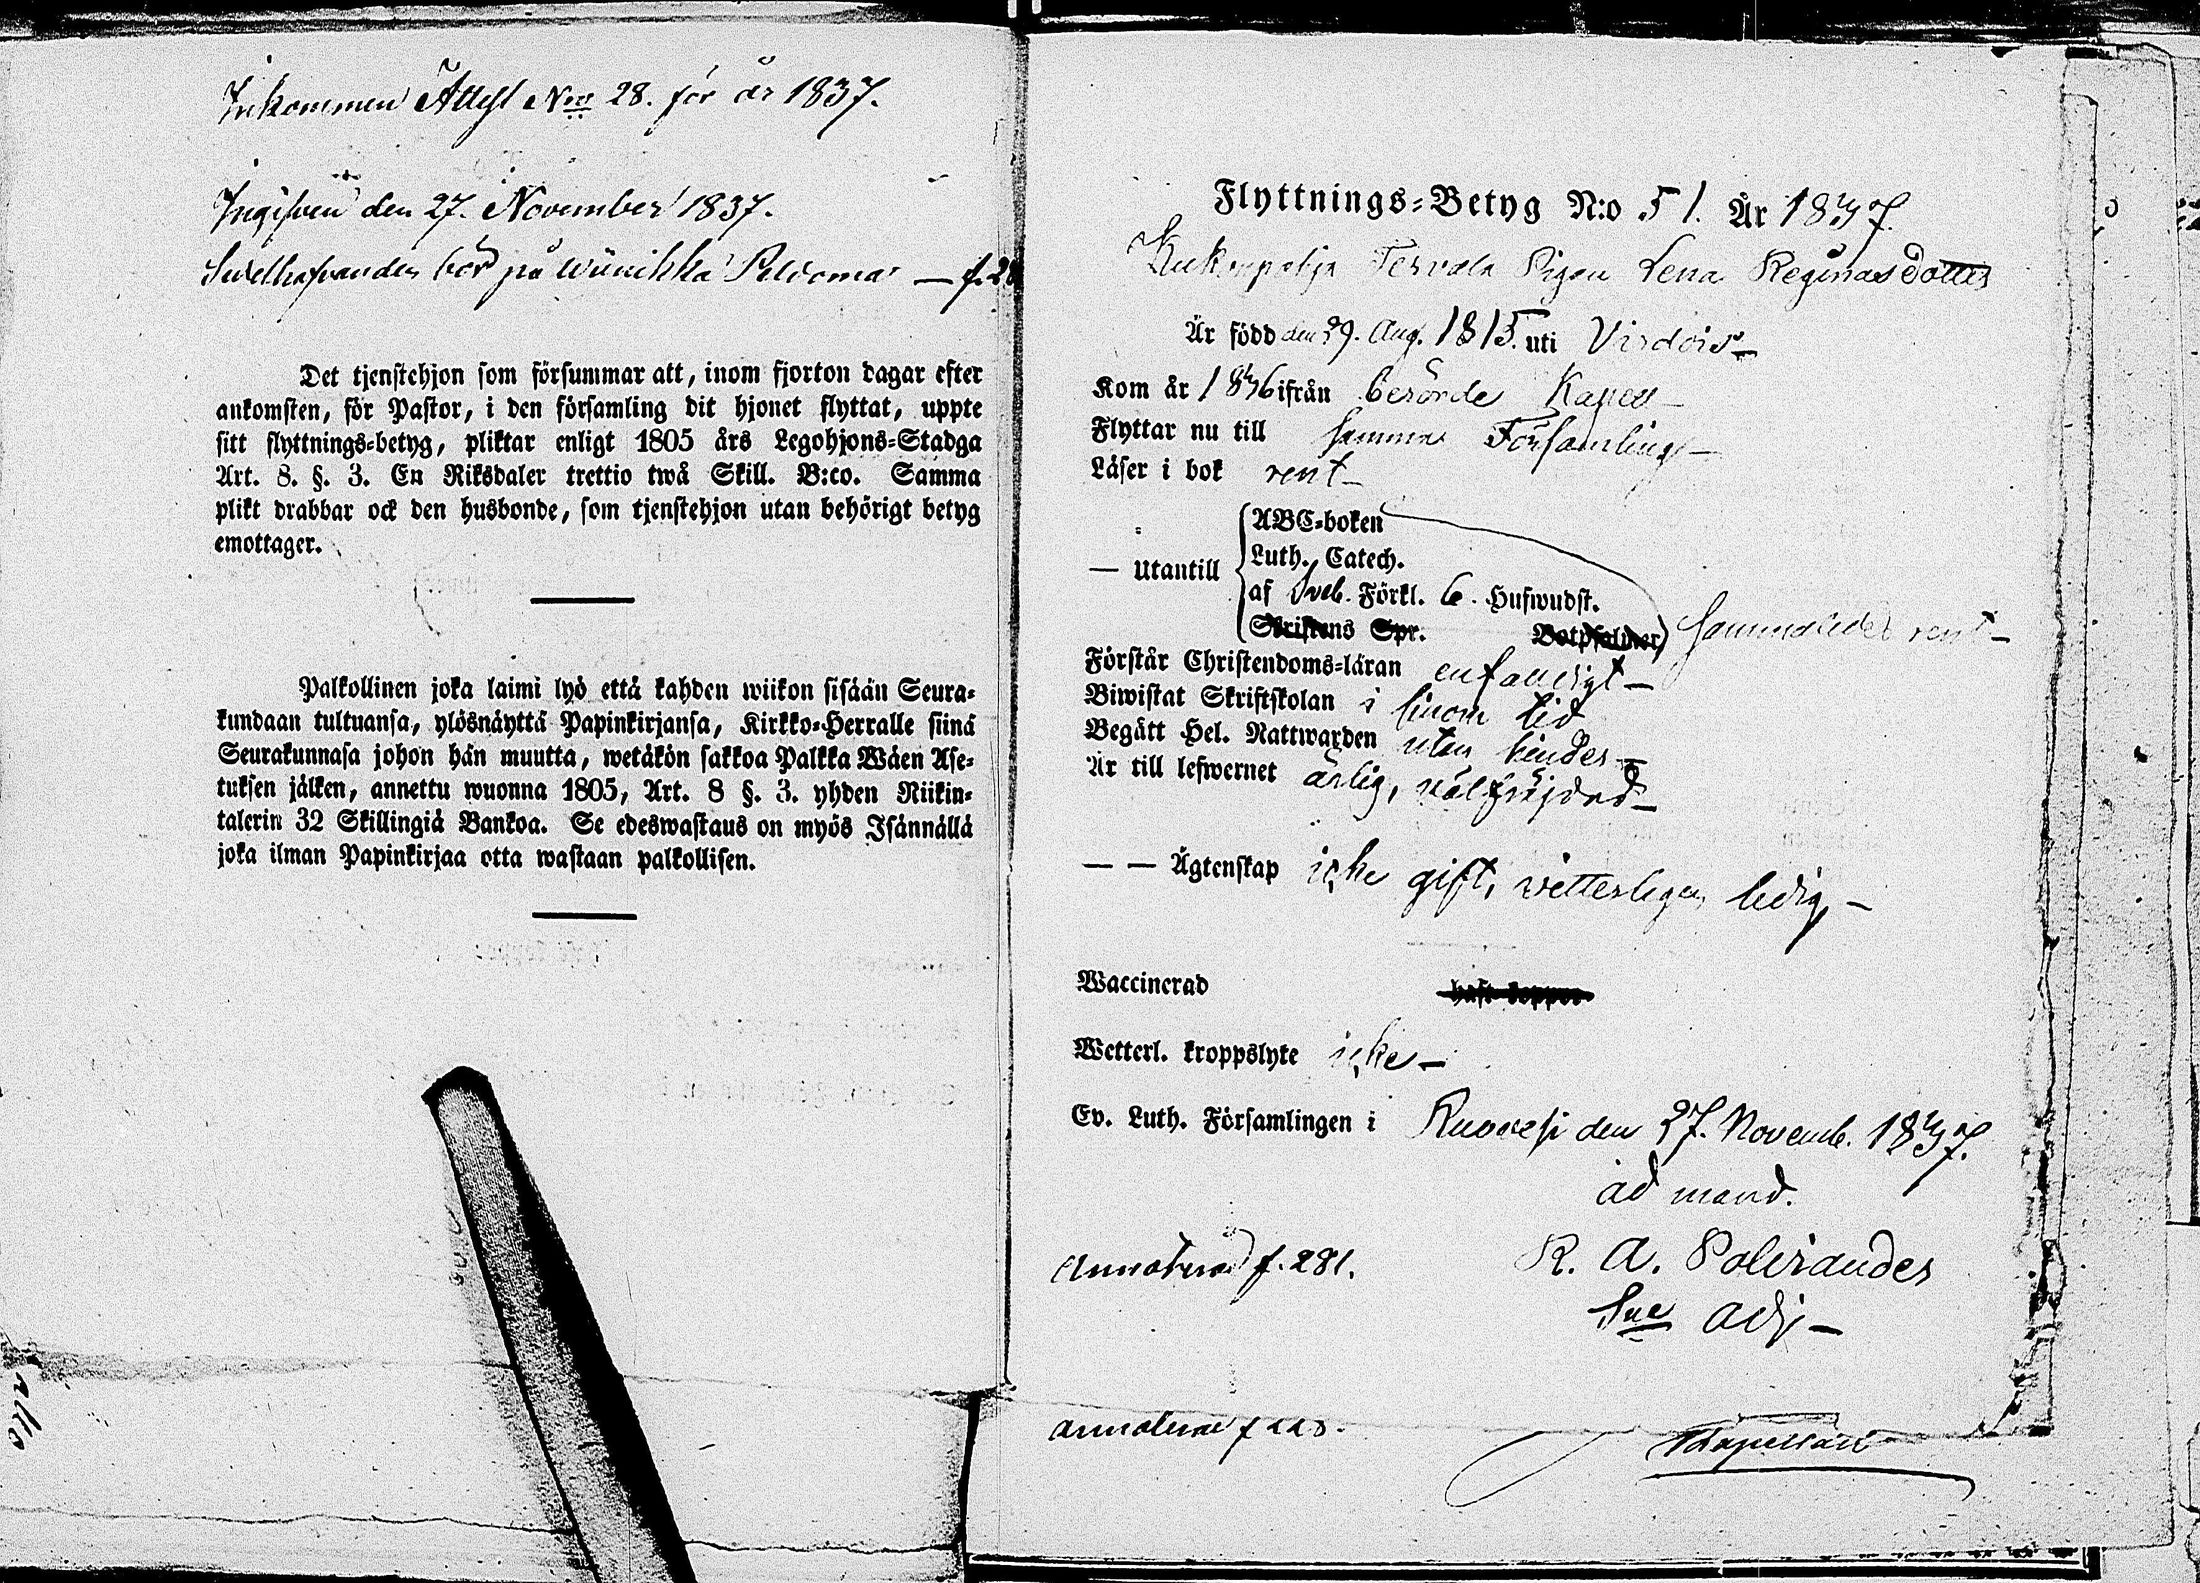 Inkommen Attest Nro 28. för år 1837.
Ingifven den 27. November 1837.
bör på Peldoma — f. 28
Det tjenstehjon som försummar att, inom fjorton dagar efter
ankomsten, för Pastor, i den församling dit hjonet flyttat, uppte
sitt flyttnings=betyg, pliktar enligt 1805 års Legohjons=Stadga
Art. 8. §. 3. En Riksdaler trettio twå Skill. B:co. Samma
plikt drabbar ock den husbonde, som tjenstehjon utan behörigt betyg
emottager.
Palkollinen joka laimi lyö että kahden wiikon sisään Seura=
kundaan tultuansa, ylösnäyttä Papinkirjansa, Kirkko=Herralle siinä
Seurakunnasa johon hän muutta, wetäkön sakkoa Palkka Wäen Ase=
tuksen jälken, annettu wuonna 1805, Art. 8 §. 3. yhden Riikin=
talerin 32 Skillingiä Bankoa. Se edeswastaus on myös Isännällä
joka ilman Papinkirjaa otta wastaan palkollisen.
Flyttnings=Betyg N:o 51. År 1837.
Tervala Pigan Lena Reginasdotter
Är född den 29. Aug. 1815. uti Virdois —
Kom år 1836 ifrån berörde Kapell —
Flyttar nu till samma Församling —
Läser i bok rent —
— Utantill
ABC=boken
Luth. Catech.
af Sveb. Förkl. 6. Hufwudst.
Skriftens Spr. Botpsalmer sammaledes rent —
Förstår Christendoms=läran enfaldigt —
Biwistat Skriftskolan i sinom tid
Begått Hel. Nattwarden utan hinder —
Är till lefwernet ärlig, välfrijdad —
— — Ägtenskap icke gift, vetterligen ledig, —
Waccinerad haft koppor
Wetterl. kroppslyte icke —
Ev. Luth. Församlingen i Ruovesi den 27. Novemb. 1837.
ad mand.
R. A. Polviander
Adj —
Annoterad f. 281.
annoterad f
Kapellan